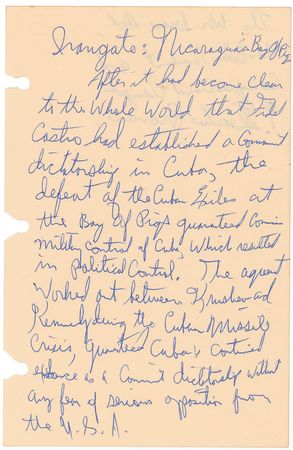 Irangate: Nicaragua's Bay Of Pigs
After it had become clear
to the Whole World that Fidel
Castro had established a Commust
dictatorship in Cuba, the
defeat of the Cuban Exiles at
the Bay Of Pigs guaranteed Comm
military Control of Cuba, which resulted
in Political Control. The agreemt
Worked out between Krushev and
Kennedy during the Cuban Missile
Crisis, guaranteed Cuba's continued
existence as a Commist dictatorship without
any fear of serious opposition from
the U.S.A.